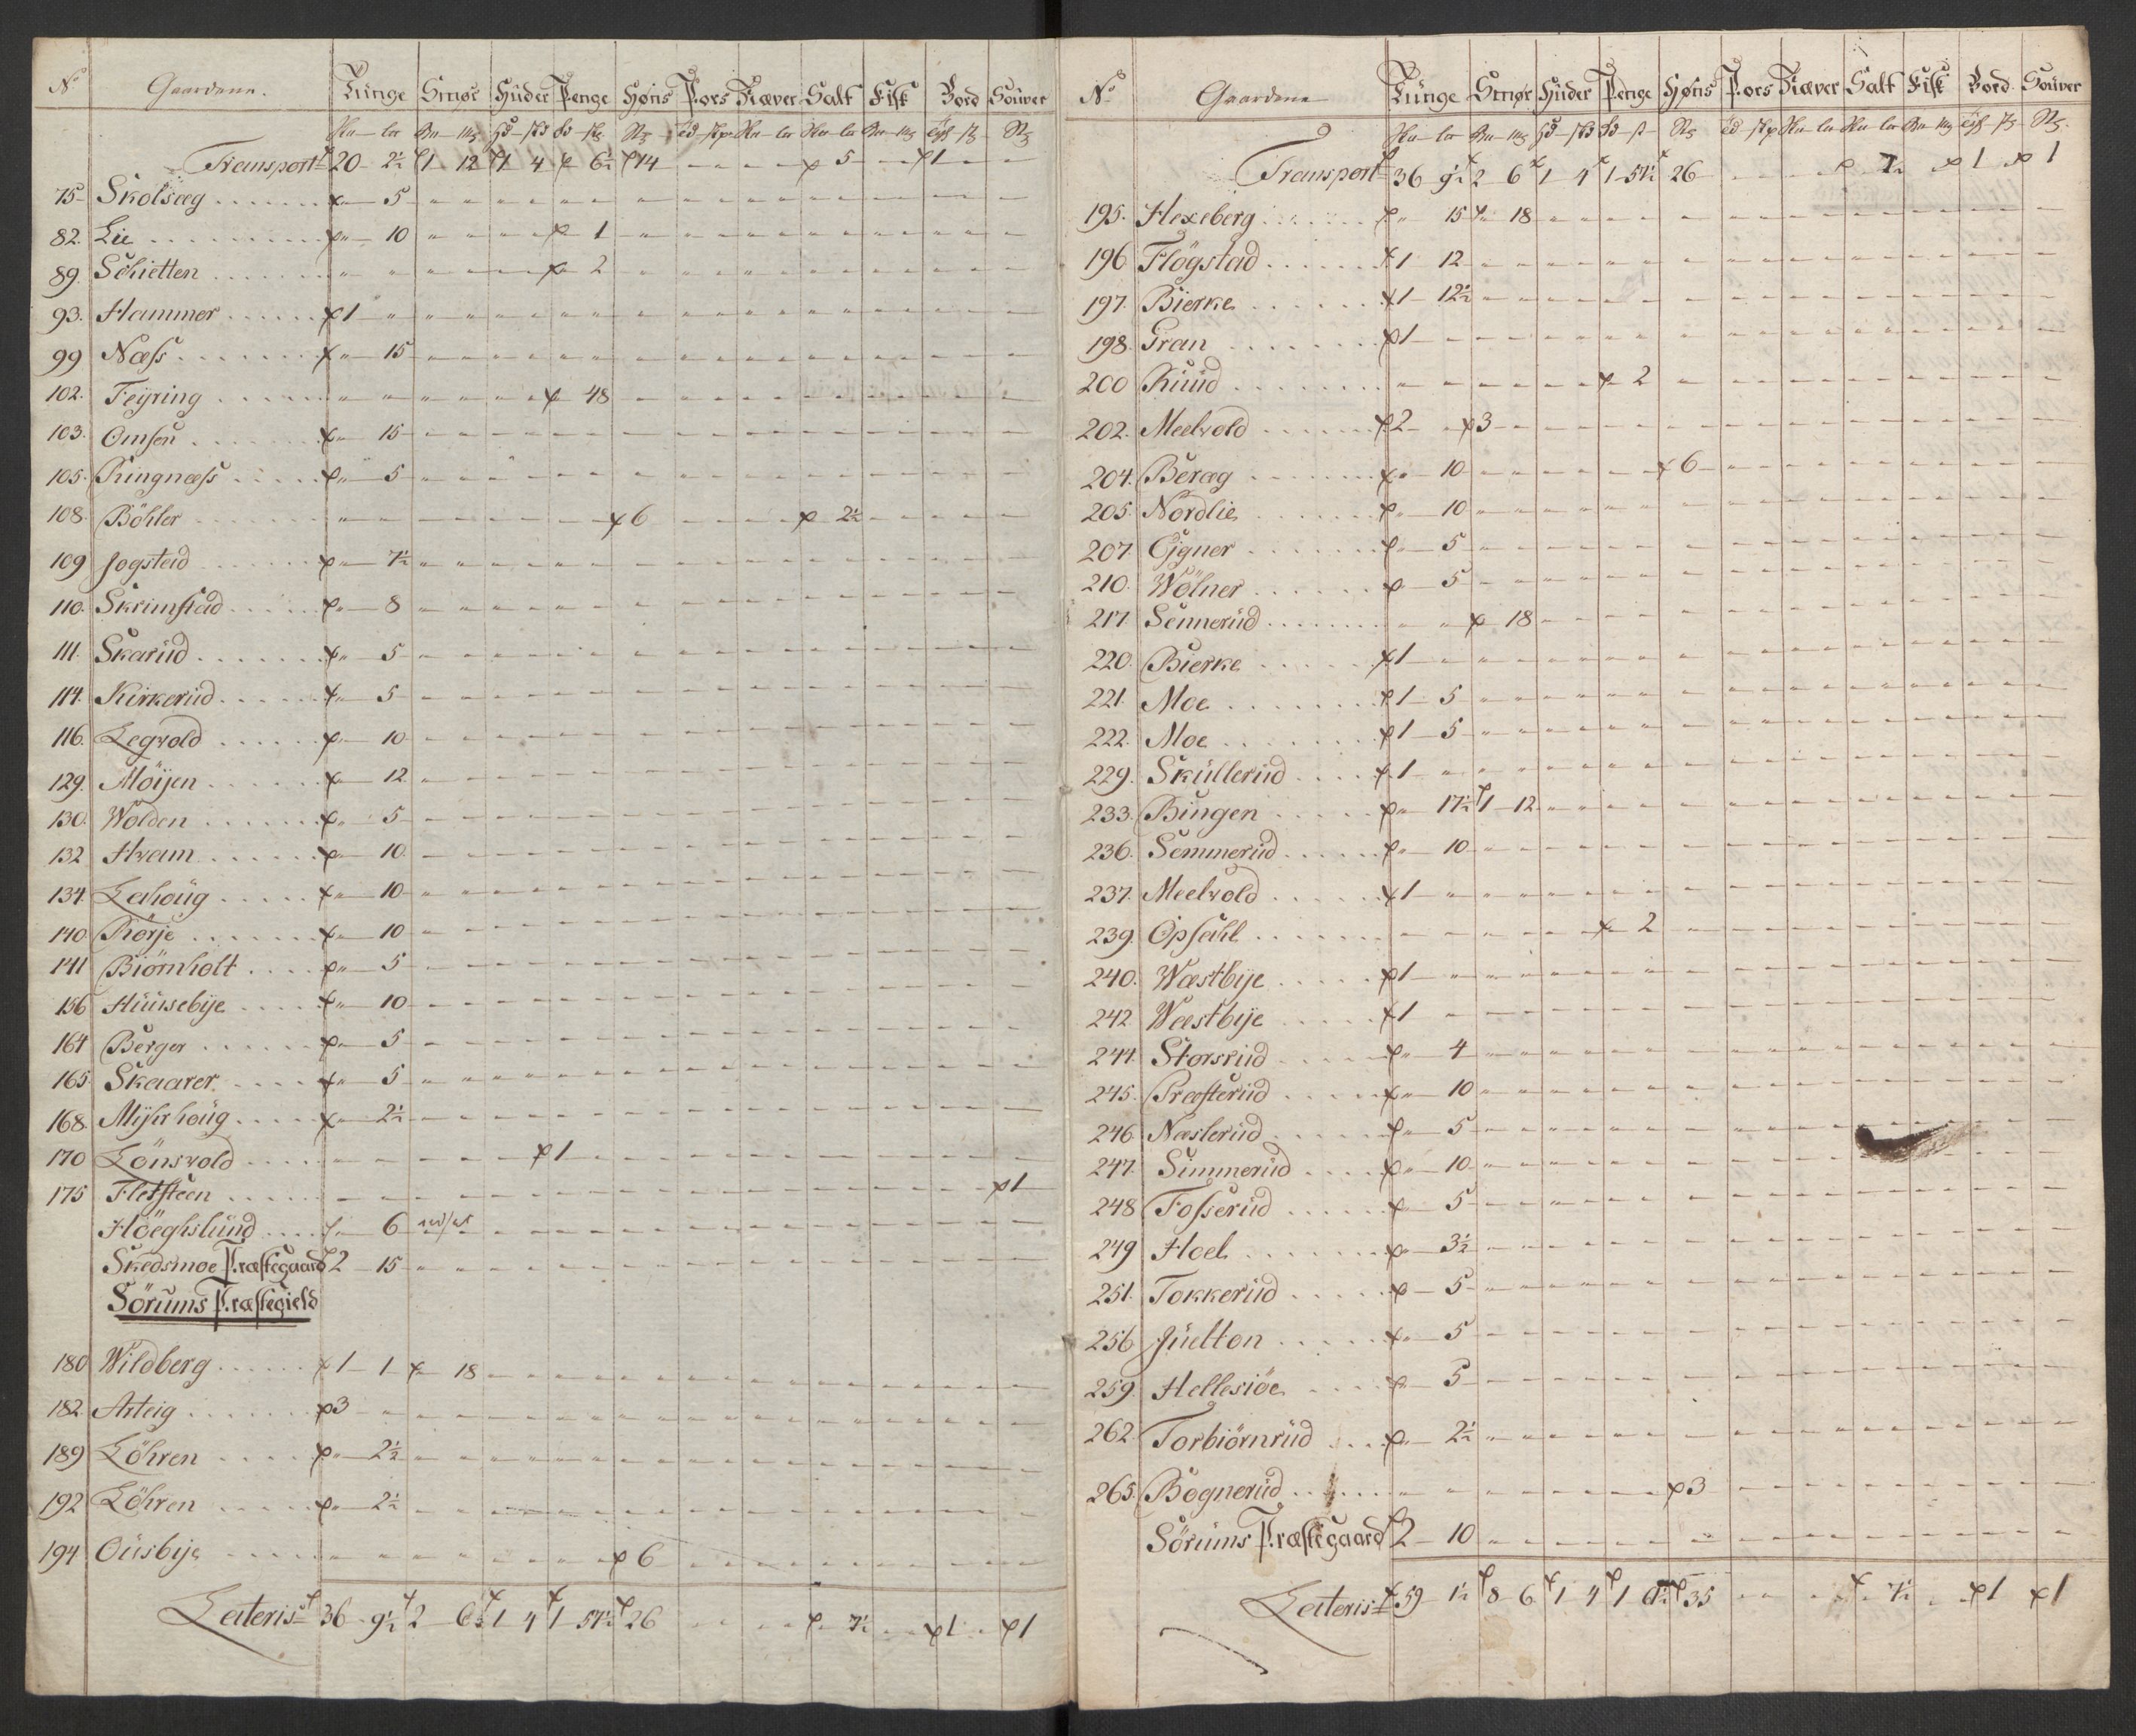 No Gaardene. Tunge Smør Huder Penge Høns Pors Tiæver Salt Fisk Bord Souver
Transport 20 - 2½ 1 12 1 4 - 6½ 14 - - - 5 - 1 - -
75 Skolsæg 5
82. Lie 10 1
89. Schietten 2
93. Hammer 1
99 Næss 15
102. Feÿring 48
103. Omsen 15
105. Ringnæss 5
108. Böhler 6 2½
109 Jogstad 7½
110. Skrimstad 8
111. Skarud 5
114. Kirkerud 5
116. Legvold 10
129. Möijen 12
130. Wolden 5
132 Hvam 10
134. Lahoug 10
140 Rörje 10
141 Biörnholt 5
156 Huusebÿe 10
164 Berger 5
165 Skaarer 5
168. Mÿhrhoug 2½
170 Lönsvold 1
175 Fletsteen 1
Höeghslund 6
Skedsmoe Præstegaard 2 - 15
Sörums Præstegield
180 Wildberg 1 - 1 18
182. Arteig 3
189 Löhren 2½
192 Löhren 2½
194 Ousbÿe 6
Lateris 36 - 9½ 2 - 6 1 4 1 57½ 26 7½ 1 1
No Gaardene Tunge Smør Huder Penge Høns Pors Tiæver Salt Fisk Bord Souver
Transport 36 9½ 2 6 1 4 1 - 57½ 26 7½ 1 1
195. Hexeberg 15 18
196 Flögstad 1 12
197. Bierke 1 - 12½
198. Gran 1
200 Ruud 2
202. Meelvold 2 3
204. Beræg 10 6
205. Nordlie 10
207. Egner 5
210. Wölner 5
217. Sennerud 18
220. Bierke 1
221. Moe 1 - 5
222. Moe 1 - 5
229. Skullerud 1
233. Bingen 17½ 1 - 12
236. Semmerud 10
237. Meelvold 1
239. Opsahl 2
240. Wæstbÿe 1
242. Wæstbÿe 1
244. Storsrud 4
245. Præsterud 10
246 Næslerud 5
247. Simmerud 10
248 Fosserud 5
249 Hoel 3½
251. Tokkerud 5
256 Juelton 5
259. Hellesiöe 5
262. Torbiörnrud 2½
265. Bognerud 3
Sörums Præstegaard 2 - 10
Lateris 59 1½ 8 - 6 1 4 1 61½ 35 7½ 1 1